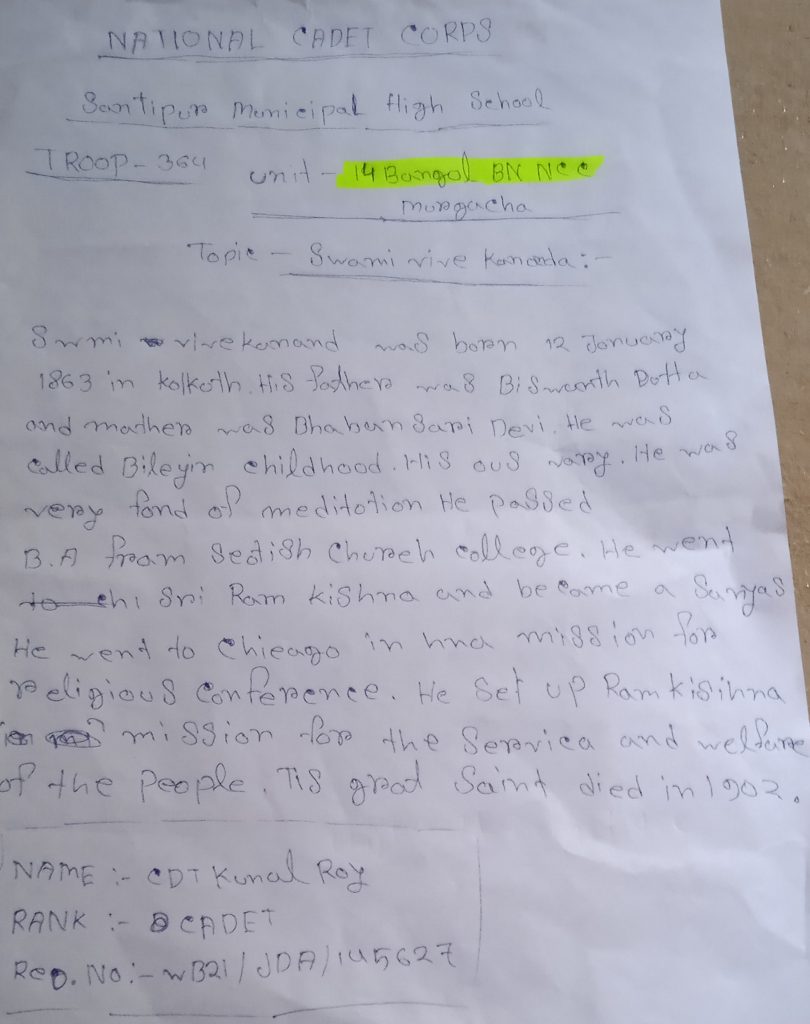 NATIONAL CADET CORPS
Santipur Municipal High School
TROOP - 364 unit - 14 Bangal BN NCC
murgacha
Topic - Swami vive Kananda :-
Swmi vivekanand was born 12 January
1863 in kolkath. His father was Biswanth Dotta
and mather was Bhaban Sari Devi. He was
called Bileyin childhood. His ous vary. He was
very fond of meditotion He passed
B.A fram Sedtish Church college. He went
to chi Sri Ram Kishna and became a Sanyas
He went to Chicago in mission for
religious Conference. He Set up Ram kisihna
mission for the Servica and welfare
of the people. Tis grat Saint died in 1902.
NAME :- CDT Kunal Roy
RANK :- CADET
Reg. No :- WB21/JDA/145627